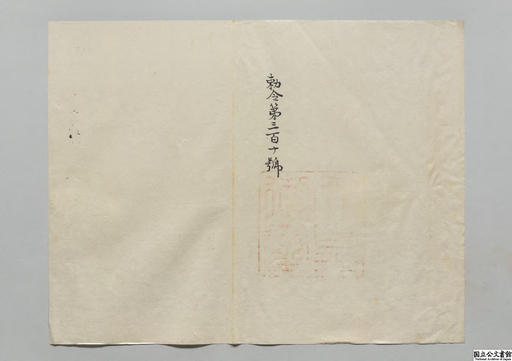 勅令第三百十號
国立公文書館
National Archives of Japan